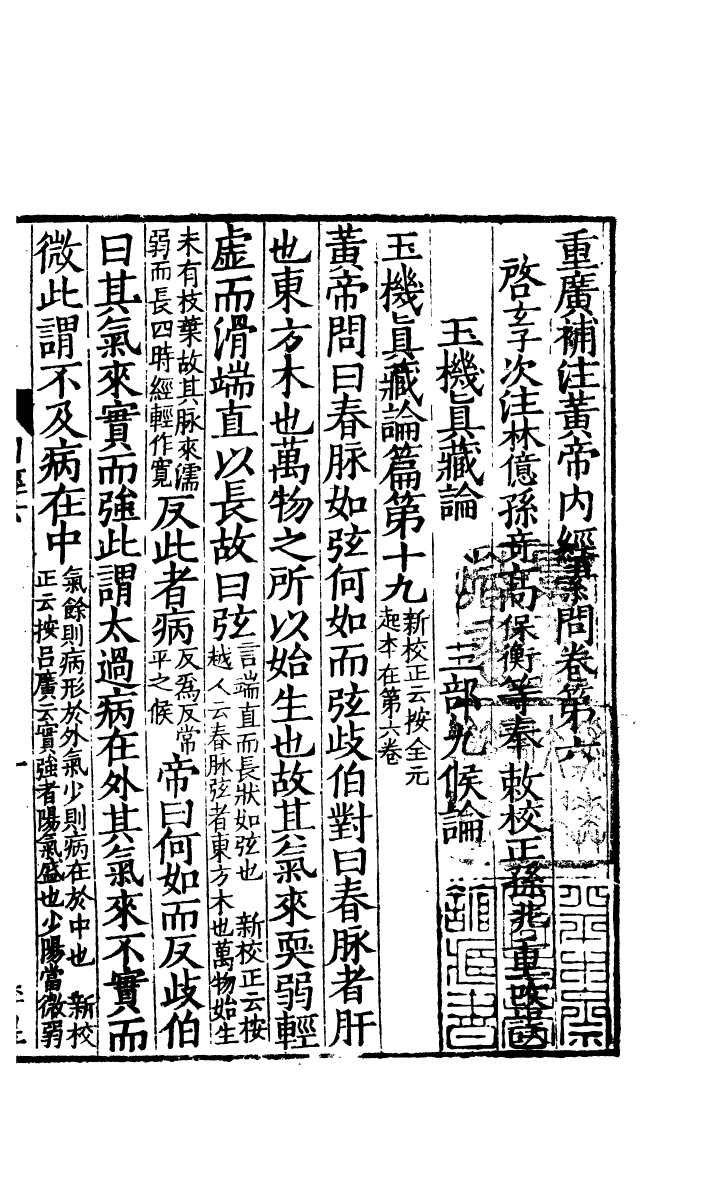 重廣補注黃帝內經素問卷第六
啓玄子次注林億孫竒高保衡等奉敕校正孫兆重改誤
玉機眞藏論　三部九候論
玉機眞藏論篇第十九新校正云按全元
起本在第六卷
黃帝問曰春脉如弦何如而弦歧伯對曰春脉者肝
也東方木也萬物之所以始生也故其氣來耎弱輕
虛而滑端直以長故曰弦言端直而長狀如弦也　新校正云按
越人云春脉弦者東方木也萬物始生
未有枝葉故其脉來濡
弱而長四時經輕作寬反此者病反爲反常
平之候帝曰何如而反歧伯
曰其氣來實而強此謂太過病在外其氣來不實而
微此謂不及病在中氣餘則病形於外氣少則病在於中也　新校
正云按呂廣云實強者陽氣盛也少陽當微弱